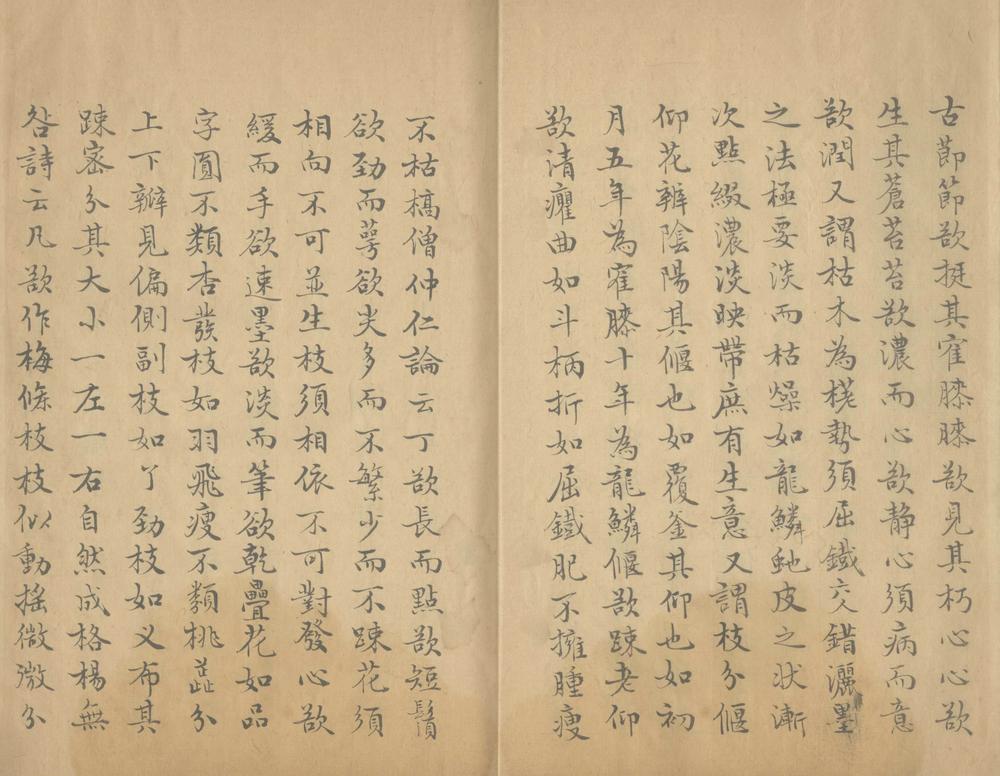 古節節欲挺其窠膝膝欲見其朽心心欲
生其蒼苔苔欲濃而心欲静心須病而意
欲潤又謂枯木為槎勢須屈鐵交錯灑墨
之法極要淡而枯燥如龍鱗虵皮之状漸
次點綴濃淡映帶庶有生意又謂枝分偃
仰花辨陰陽其偃也如覆釜其仰也如初
月五年為窠膝十年為龍鱗偃欲踈老仰
欲清癯曲如斗柄折如屈鐵肥不擁腫瘦
不枯槁僧仲仁論云丁欲長而點欲短鬚
欲勁而萼欲尖多而不繁少而不踈花須
相向不可並生枝須相依不可對發心欲
緩而手欲速墨欲淡而筆欲乾疊花如品
字圓不類杏發枝如羽飛瘦不類桃蕋分
上下瓣見偏側副枝如丫勁枝如义布其
踈宻分其大小一左一右自然成格楊無
咎詩云凡欲作梅條枝枝似動摇微微分